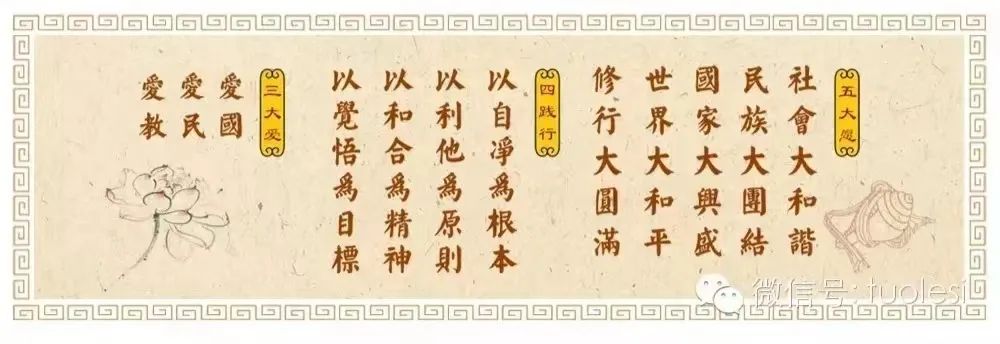 五大愿
社會大和諧
民族大團結
國家大興盛
世界大和平
修行大圓滿
四践行
以自凈為根本
以利他為原則
以和合為精神
以覺悟為目標
三大爱
愛國
愛民
愛教
微信号: tuolesi